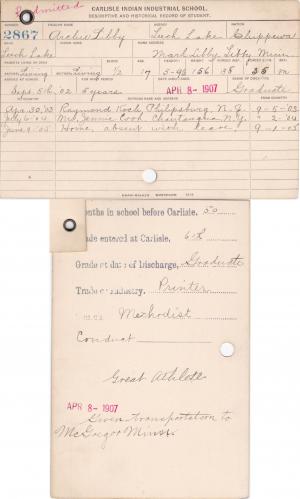 Readmitted
CARLISLE INDIAN INDUSTRIAL SCHOOL.
DESCRIPTIVE AND HISTORICAL RECORD OF STUDENT.
NUMBER ENGLISH NAME AGENCY NATION
2867 Archie Libby Leech Lake Chippewa
BAND INDIAN NAME HOME ADDRESS
Leech Lake Mark Libby Libby Minn
1/2 17 5-9½ 156 35 m
Sept 5th 02 5 years APR 8- 1907 Graduate
Apr 30, 03 Raymond Koch Philpsburg N. J. 9-5-'03
July 6-04 Mrs Jennie Cook Chautauqua N. Y. 2-'04
June 8 '05 Home, absent with leave 9-1-05
Months in school before Carlisle, 50
Grade entered at Carlisle, 6th
Grade at date of Discharge, Graduate
Trade or Industry, Printer
Methodist
Conduct
Great Athlete
APR 8- 1907
Given transportation to
McGregor Minn.